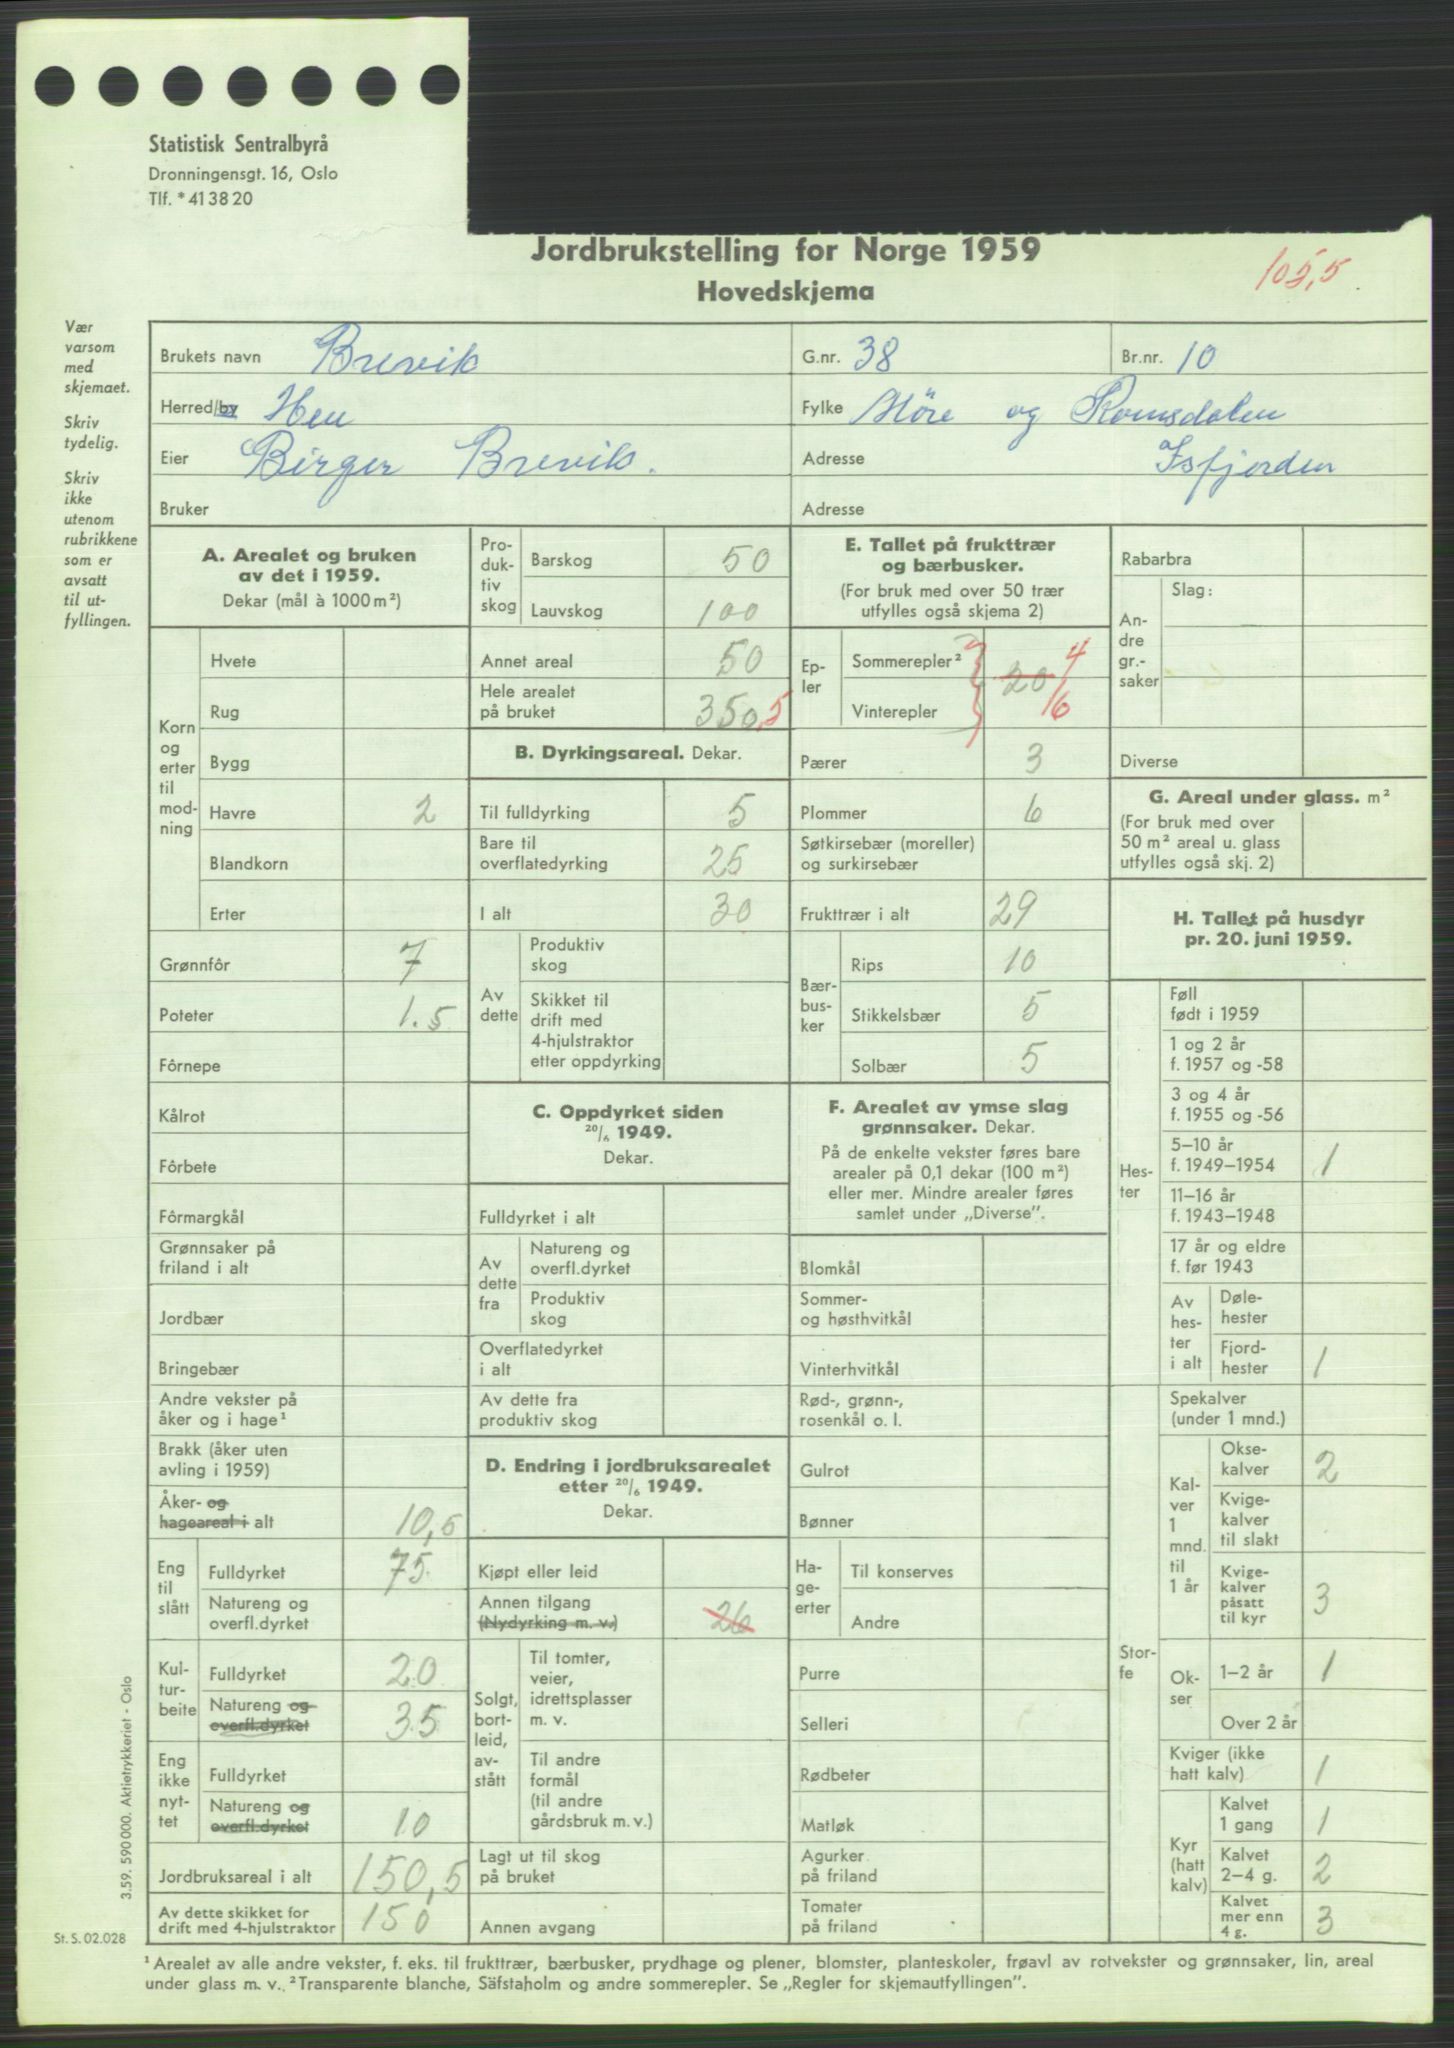 Statistisk Sentralbyrå
Dronningensgt. 16, Oslo
Tlf. * 41 38 20
Jordbrukstelling for Norge 1959
Hovedskjema
105,5
Vær
varsom
med
skjemaet.
Skriv
tydelig.
Skriv
ikke
utenom
rubrikkene
som er
avsatt
til ut-
fyllingen.
Brukets navn Brevik G.nr. 38 Br.nr. 10
Herred/by Hen Fylke Möre og Romsdalen
Eier Birger Brevik. Adresse Isfjorden
Bruker Adresse
A. Arealet og bruken
av det i 1959.
Dekar (mål à 1000 m²)
Korn
og
erter
til
mod-
ning
Hvete
Rug
Bygg
Havre 2
Blandkorn
Erter
Grønnfôr 7
Poteter 1.5
Fôrnepe
Kålrot
Fôrbete
Fôrmargkål
Grønnsaker på
friland i alt
Jordbær
Bringebær
Andre vekster på
åker og i hage¹
Brakk (åker uten
avling i 1959)
Åker- og
hageareal i alt 10,5
Eng
til
slått
Fulldyrket 75
Natureng og
overfl.dyrket
Kul-
tur-
beite
Fulldyrket 20
Natureng og
overfl.dyrket 35
Eng
ikke
nyt-
tet
Fulldyrket
Natureng og
overfl.dyrket 10
Jordbruksareal i alt 150,5
Av dette skikket for
drift med 4-hjulstraktor 150
Pro-
duk-
tiv
skog
Barskog 50
Lauvskog 100
Annet areal 50
Hele arealet
på bruket 350,5
B. Dyrkingsareal. Dekar.
Til fulldyrking 5
Bare til
overflatedyrking 25
I alt 30
Av
dette
Produktiv
skog
Skikket til
drift med
4-hjulstraktor
etter oppdyrking
C. Oppdyrket siden
20/6 1949.
Dekar.
Fulldyrket i alt
Av
dette
fra
Natureng og
overfl.dyrket
Produktiv
skog
Overflatedyrket
i alt
Av dette fra
produktiv skog
D. Endring i jordbruksarealet
etter 20/6 1949.
Dekar.
Kjøpt eller leid
Annen tilgang
(Nydyrking m. v.) 26
Solgt,
bort-
leid,
av-
stått
Til tomter,
veier,
idrettsplasser
m. v.
Til andre
formål
(til andre
gårdsbruk m. v.)
Lagt ut til skog
på bruket
Annen avgang
E. Tallet på frukttrær
og bærbusker.
(For bruk med over 50 trær
utfylles også skjema 2)
Ep-
ler
Sommerepler² 4
20
Vinterepler 16
Pærer 3
Plommer 6
Søtkirsebær (moreller)
og surkirsebær
Frukttrær i alt 29
Bær-
bus-
ker
Rips 10
Stikkelsbær 5
Solbær 5
F. Arealet av ymse slag
grønnsaker. Dekar.
På de enkelte vekster føres bare
arealer på 0,1 dekar (100 m²)
eller mer. Mindre arealer føres
samlet under „Diverse”.
Blomkål
Sommer-
og høsthvitkål
Vinterhvitkål
Rød-, grønn-,
rosenkål o. l.
Gulrot
Bønner
Ha-
ge-
erter
Til konserves
Andre
Purre
Selleri
Rødbeter
Matløk
Agurker
på friland
Tomater
på friland
Rabarbra
An-
dre
gr.-
saker
Slag:
Diverse
G. Areal under glass. m²
(For bruk med over
50 m² areal u. glass
utfylles også skj. 2)
H. Tallet på husdyr
pr. 20. juni 1959.
Hes-
ter
Føll
født i 1959
1 og 2 år
f. 1957 og -58
3 og 4 år
f. 1955 og -56
5–10 år
f. 1949–1954 1
11–16 år
f. 1943–1948
17 år og eldre
f. før 1943
Av
hes-
ter
i alt
Døle-
hester
Fjord-
hester 1
Stor-
fe
Spekalver
(under 1 mnd.)
Kal-
ver
1
mnd.
til
1 år
Okse-
kalver 2
Kvige-
kalver
til slakt
Kvige-
kalver
påsatt
til kyr 3
Ok-
ser
1–2 år 1
Over 2 år
Kviger (ikke
hatt kalv) 1
Kyr
(hatt
kalv)
Kalvet
1 gang 1
Kalvet
2–4 g. 2
Kalvet
mer enn
4 g. 3
3.59. 590 000. Aktietrykkeriet - Oslo
St. S. 02.028
¹ Arealet av alle andre vekster, f. eks. til frukttrær, bærbusker, prydhage og plener, blomster, planteskoler, frøavl av rotvekster og grønnsaker, lin, areal
under glass m. v. ² Transparente blanche, Säfstaholm og andre sommerepler. Se „Regler for skjemautfyllingen”.